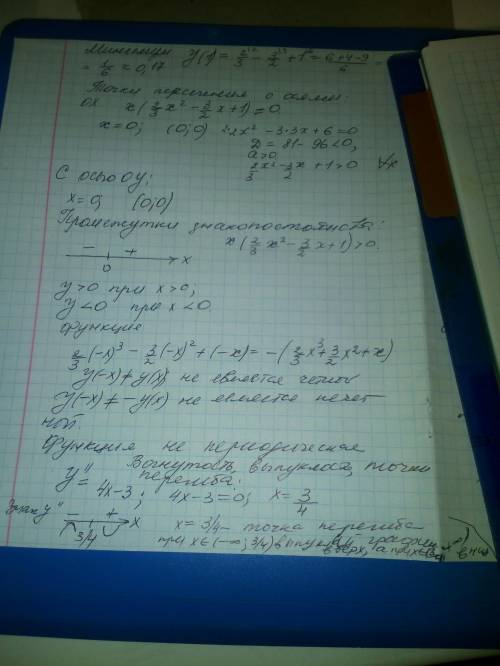 Минимум y(1) = 2/3 - 3/2 + 1 = (6+4-9)/6 =
= 1/6 ≈ 0,17
Точки пересечения с осями:
OX x(2/3 x² - 3/2 x + 1) = 0.
x = 0; (0;0) 2·2x² - 3·3x + 6 = 0
D = 81 - 96 < 0,
a > 0
2/3 x² - 3/2 x + 1 > 0 ∀x
С осью OY:
x = 0; (0;0)
Промежутки знакопостоянства:
x(2/3 x² - 3/2 x + 1) > 0.
- + x
0
y > 0 при x > 0;
y < 0 при x < 0.
Функция
2/3 (-x)³ - 3/2 (-x)² + (-x) = -(2/3 x³ + 3/2 x² + x)
y(-x) ≠ y(x); не является четн
y(-x) ≠ -y(x) не является нечет
ной.
Функция не периодическая
Вогнутость, выпуклость, точки
перегиба:
y'' = 4x-3; 4x-3=0; x = 3/4
Знак y'' - + x
3/4
x = 3/4 - точка перегиба
при x ∈ (-∞; 3/4) выпуклый график
вверх, а при x ∈ вниз